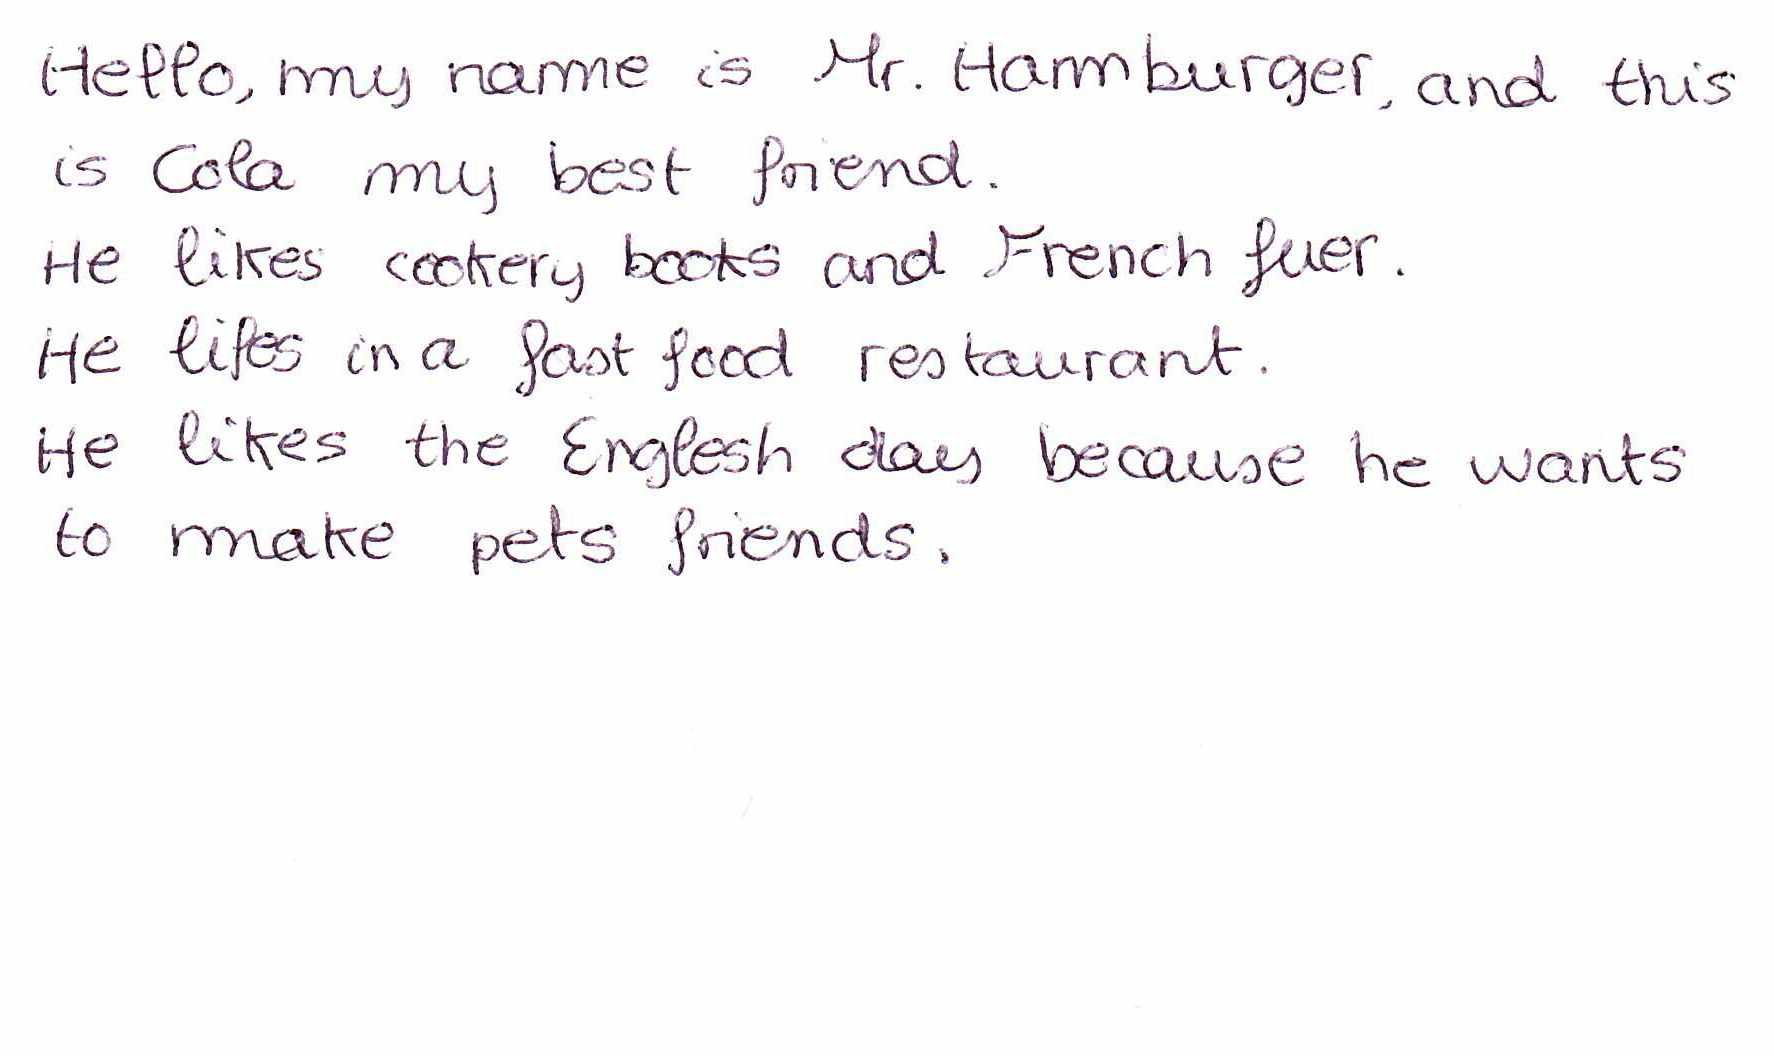 Hello, my name is Mr. Hamburger, and this
is Cola my best friend.
He likes cookery books and French fuer.
He lifes in a fast food restaurant.
He likes the Englesh day because he wants
to make pets friends.